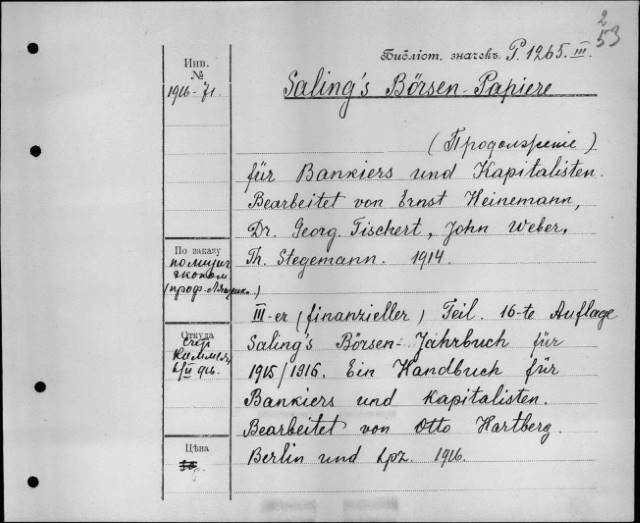 2
53
Библіот. значекъ P. 1265. III.
Инв.
№
1916-71.
Saling's Börsen-Papiere
(Продолженіе)
für Bankiers und Kapitalisten.
Bearbeitet von Ernst Heinemann,
Dr. Georg. Tischert, John Weber,
Th. Stegemann. 1914.
По заказу
эконом
(проф.
III-er (finanzieller) Teil. 16-te Auflage
Откуда
Saling's Börsen-Jahrbuch für
1915/1916. Ein Handbuch für
Bankiers und Kapitalisten.
Bearbeitet von Otto Hartberg.
Цѣна
Berlin und Lpz. 1916.